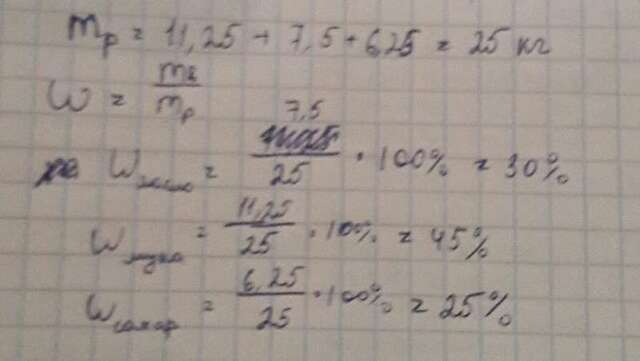 m_р = 11,25 + 7,5 + 6,25 = 25 кг
ω = mв / mр
ω_масло = 7,5 / 25 · 100% = 30%
ω_мука = 11,25 / 25 · 100% = 45%
ω_сахар = 6,25 / 25 · 100% = 25%